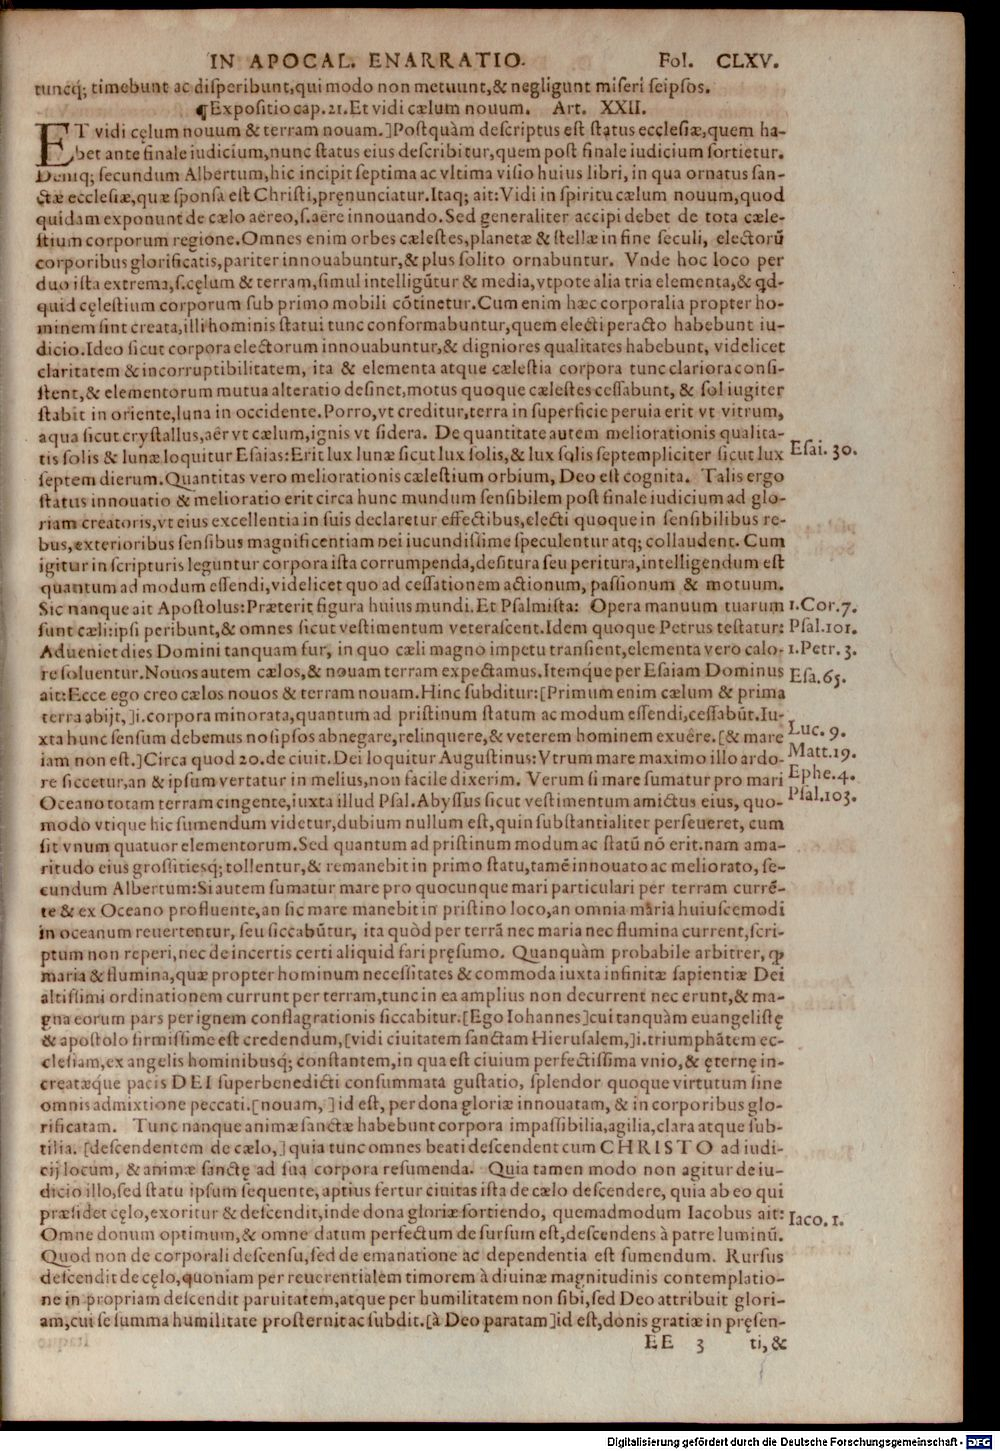 IN APOCAL. ENARRATIO. Fol. CLXV.
tuncq; timebunt ac disperibunt,qui modo non metuunt,& negligunt miseri seipsos.
¶Expositio cap.21.Et vidi cælum nouum. Art. XXII.
ET vidi cęlum nouum & terram nouam.]Postquàm descriptus est status ecclesiæ,quem ha-
bet ante finale iudicium,nunc status eius describitur,quem post finale iudicium sortietur.
Deniq; secundum Albertum,hic incipit septima ac vltima visio huius libri, in qua ornatus san-
ctæ ecclesiæ,quæ sponsa est Christi,pręnunciatur.Itaq; ait:Vidi in spiritu cælum nouum,quod
quidam exponunt de cælo aëreo,s.aëre innouando.Sed generaliter accipi debet de tota cæle-
stium corporum regione.Omnes enim orbes cælestes,planetæ & stellæ in fine seculi, electorũ
corporibus glorificatis,pariter innouabuntur,& plus solito ornabuntur. Vnde hoc loco per
duo ista extrema,s.cęlum & terram,simul intelligũtur & media,vtpote alia tria elementa,& qd-
quid cęlestium corporum sub primo mobili cõtinetur.Cum enim hæc corporalia propter ho-
minem sint creata,illi hominis statui tunc conformabuntur,quem electi peracto habebunt iu-
dicio.Ideo sicut corpora electorum innouabuntur,& digniores qualitates habebunt, videlicet
claritatem & incorruptibilitatem, ita & elementa atque cælestia corpora tunc clariora consi-
stent,& elementorum mutua alteratio desinet,motus quoque cælestes cessabunt, & sol iugiter
stabit in oriente,luna in occidente.Porro,vt creditur,terra in superficie peruia erit vt vitrum,
aqua sicut crystallus,aër vt cælum,ignis vt sidera. De quantitate autem meliorationis qualita-
tis solis & lunæ loquitur Esaias:Erit lux lunæ sicut lux solis,& lux solis septempliciter sicut lux Esai. 30.
septem dierum.Quantitas vero meliorationis cælestium orbium, Deo est cognita. Talis ergo
status innouatio & melioratio erit circa hunc mundum sensibilem post finale iudicium ad glo-
riam creatoris,vt eius excellentia in suis declaretur effectibus,electi quoque in sensibilibus re-
bus,exterioribus sensibus magnificentiam Dei iucundissime speculentur atq; collaudent. Cum
igitur in scripturis leguntur corpora ista corrumpenda,desitura seu peritura,intelligendum est
quantum ad modum essendi,videlicet quo ad cessationem actionum, passionum & motuum.
Sic nanque ait Apostolus:Præterit figura huius mundi.Et Psalmista: Opera manuum tuarum 1.Cor.7.
sunt cæli:ipsi peribunt,& omnes sicut vestimentum veterascent.Idem quoque Petrus testatur: Psal.101.
Adueniet dies Domini tanquam fur, in quo cæli magno impetu transient,elementa vero calo- 1.Petr. 3.
re soluentur.Nouos autem cælos,& nouam terram expectamus.Itemq́ue per Esaiam Dominus Esa.65.
ait:Ecce ego creo cælos nouos & terram nouam.Hinc subditur:[Primum enim cælum & prima
terra abijt,]i.corpora minorata,quantum ad pristinum statum ac modum essendi,cessabũt.Iu-
xta hunc sensum debemus nosipsos abnegare,relinquere,& veterem hominem exuêre.[& mare Luc. 9.
iam non est.]Circa quod 20.de ciuit.Dei loquitur Augustinus:Vtrum mare maximo illo ardo- Matt.19.
re siccetur,an & ipsum vertatur in melius,non facile dixerim. Verum si mare sumatur pro mari Ephe.4.
Oceano totam terram cingente,iuxta illud Psal.Abyssus sicut vestimentum amictus eius, quo- Psal.103.
modo vtique hic sumendum videtur,dubium nullum est,quin substantialiter perseueret, cum
sit vnum quatuor elementorum.Sed quantum ad pristinum modum ac statũ nõ erit.nam ama-
ritudo eius grossitiesq; tollentur,& remanebit in primo statu,tamẽ innouato ac meliorato, se-
cundum Albertum:Si autem sumatur mare pro quocunque mari particulari per terram currẽ-
te & ex Oceano profluente,an sic mare manebit in pristino loco,an omnia maria huiuscemodi
in oceanum reuertentur, seu siccabũtur, ita quòd per terrã nec maria nec flumina current,scri-
ptum non reperi,nec de incertis certi aliquid fari pręsumo. Quanquàm probabile arbitrer, ꝙ
maria & flumina,quæ propter hominum necessitates & commoda iuxta infinitæ sapientiæ Dei
altissimi ordinationem currunt per terram,tunc in ea amplius non decurrent nec erunt,& ma-
gna eorum pars per ignem conflagrationis siccabitur.[Ego Iohannes]cui tanquàm euangelistę
& apostolo firmissime est credendum,[vidi ciuitatem sanctam Hierusalem,]i.triumphãtem ec-
clesiam,ex angelis hominibusq; constantem,in qua est ciuium perfectissima vnio,& ęternę in-
creatæq́ue pacis DEI superbenedicti consummata gustatio, splendor quoque virtutum sine
omnis admixtione peccati.[nouam, ]id est, per dona gloriæ innouatam, & in corporibus glo-
rificatam. Tunc nanque animæ sanctæ habebunt corpora impassibilia,agilia,clara atque sub-
tilia. [descendentem de cælo,]quia tunc omnes beati descendent cum CHRISTO ad iudi-
cij locum, & animæ sanctę ad sua corpora resumenda. Quia tamen modo non agitur de iu-
dicio illo,sed statu ipsum sequente,aptius fertur ciuitas ista de cælo descendere, quia ab eo qui
præsidet cęlo,exoritur & descendit,inde dona gloriæ sortiendo, quemadmodum Iacobus ait: Iaco. 1.
Omne donum optimum,& omne datum perfectum de sursum est,descendens à patre luminũ.
Quod non de corporali descensu,sed de emanatione ac dependentia est sumendum. Rursus
descendit de cęlo,quoniam per reuerentialem timorem à diuinæ magnitudinis contemplatio-
ne in propriam descendit paruitatem,atque per humilitatem non sibi,sed Deo attribuit glori-
am,cui se summa humilitate prosternit ac subdit.[à Deo paratam]id est,donis gratiæ in pręsen-
EE 3 ti, &
Digitalisierung gefördert durch die Deutsche Forschungsgemeinschaft - DFG